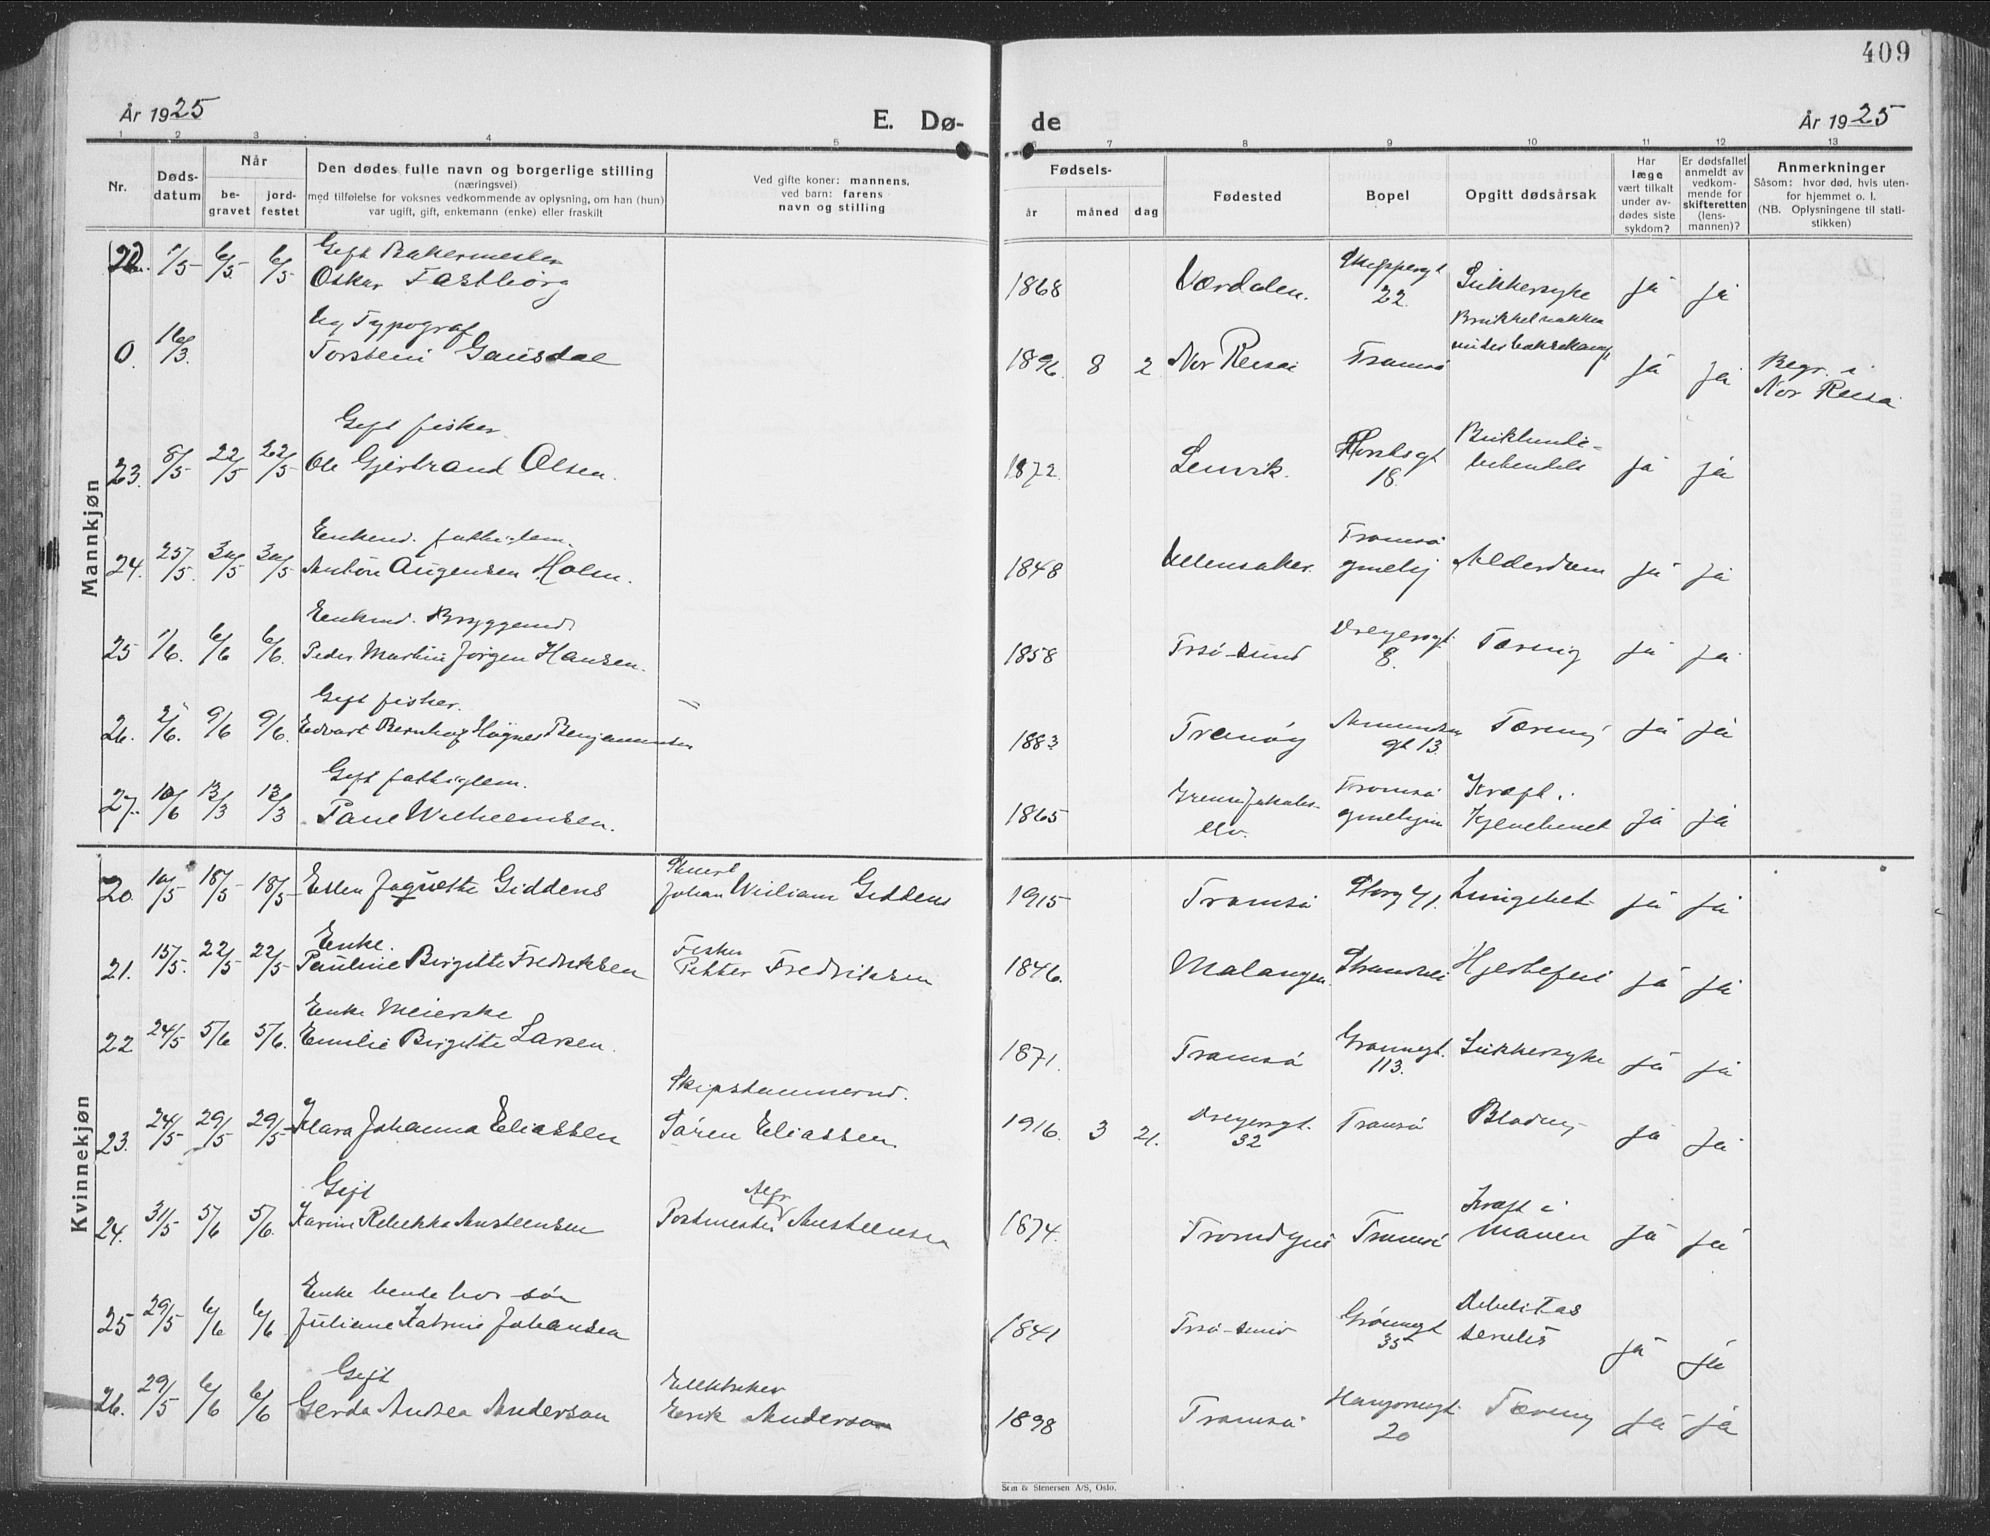 409
År 1925
E. Dø-
de
År 1925
1 2 3 4 5 6 7 8 9 10 11 12 13
Nr.
Døds-
datum
Når
be-
gravet
jord-
festet
Den dødes fulle navn og borgerlige stilling
(næringsvei)
med tilføielse for voksnes vedkommende av oplysning, om han (hun)
var ugift, gift, enkemann (enke) eller fraskilt
Ved gifte koner: mannens,
ved barn: farens
navn og stilling
Fødsels-
år
måned
dag
Fødested
Bopel
Opgitt dødsårsak
Har
læge
vært tilkalt
under av-
dødes siste
sykdom?
Er dødsfallet
anmeldt av
vedkom-
mende for
skifteretten
(lens-
mannen)?
Anmerkninger
Såsom: hvor død, hvis uten-
for hjemmet o. l.
(NB. Oplysningene til stati-
stikken)
Mannkjøn
Gift Bakermester
22. 1/5 6/5 6/5 Oskar Fastborg 1868 Værdalen. Skippergt 22. Sukkersyke ja ja
Ug Typograf
0. 16/3. Torstein Gausdal 1896 8 2 Nor Reisa Tromsø ja ja Begr. i
Nor Reisa
Gift fisker.
23. 8/5 22/5 22/5 Ole Gjertrand Olsen. 1872 Lenvik. 18. ja ja
Enkem. fattiglem.
24. 25/5. 30/5 30/5 Anton Augensen Holm. 1848 Ullensaker. Tromsø gmelhj Alderdom ja ja
Enkem. Bryggem.
25 1/6. 6/6 6/6. Peder Martin Jørgen Hansen. 1858 Trsø-sund Vregersgt. 8. Tæring ja ja
Gift fisker.
26. 2/6. 9/6 9/6. Edvart Bernhof Høgnes Benjaminsen 1883 Tranøy Amundsen gt 13. Tæring ja ja
Gift fattiglem.
27. 10/6 13/3 13/3 Paul Wilhelmsen. 1865 Grense Jakobs-
elv. Tromsø Kræft i
ja ja
Kvinnekjøn
Stuert
20 10/5 18/5 18/5 Ellen Jaquette Giddens Johan William Giddens 1915 Tromsø Storg 41. Lungebet. ja ja
Enke. Fisker
21. 15/5. 22/5 22/5 Pauline Birgitte Fredriksen Petter Fredriksen 1846. Malangen. Strandvei Hjertefeil ja ja
Enke Meierske
22 24/5 5/6 5/6. Emilie Birgitte Larsen. 1871. Tromsø Grønnegt. 113. Sukkersyke ja ja
Skipstømmerm.
23. 24/5 29/5 29/5 Klara Johanna Eliassen Søren Eliassen. 1916 3 21. Vregersgt. 32 Tromsø Blodm. ja ja
Gift Alfr
24. 31/5 5/6 5/6. Karine Rebekka Austeensen Postmester Austeensen 1874. Tromsø Kræft i
maven ja ja
Enke hos søn
25 29/5 6/6 6/6. Juliane Katrine Johansen 1841 Grønnegt 35 Debilitas
senilis ja ja
Gift Elektriker
26. 29/5 6/6 6/6 Gerda Andrea Anderson Erik Anderson 1898 Tromsø 20 Tæring ja ja
Sem & Stenersen A/S, Oslo.